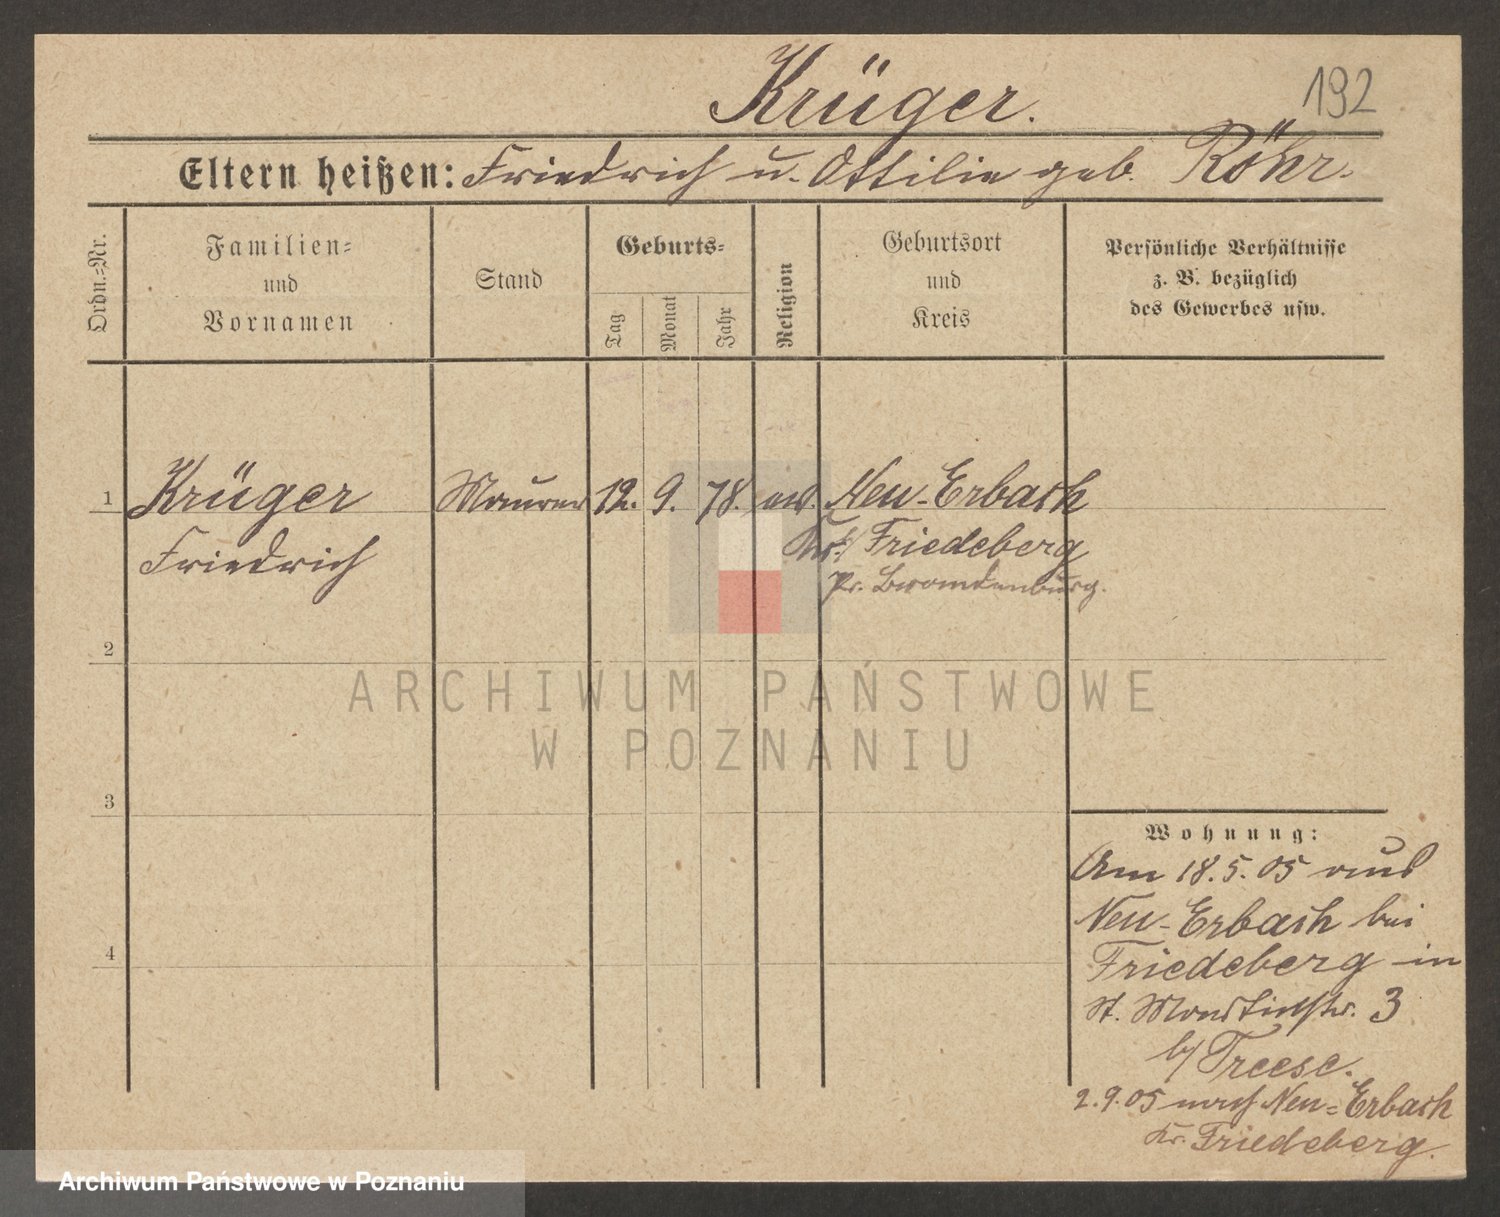 Krüger.
192
Eltern heißen: Friedrich u. Ottilie geb. Röhr.
Ordn.=Nr.
Familien=
und
Vornamen
Stand
Geburts=
Tag
Monat
Jahr
Religion
Geburtsort
und
Kreis
Persönliche Verhältnisse
z. B. bezüglich
des Gewerbes usw.
1 Krüger Maurer 12. 9. 78. ev. Neu-Erbach
Friedrich Kr. Friedeberg
Pr. Brandenburg.
2
3
4
Wohnung:
Am 18.5.05 aus
Neu-Erbach bei
Friedeberg in
St. Martinstr. 3
b/ Treese.
2.9.05 nach Neu=Erbach
Kr. Friedeberg.
ARCHIWUM PAŃSTWOWE
W POZNANIU
Archiwum Państwowe w Poznaniu